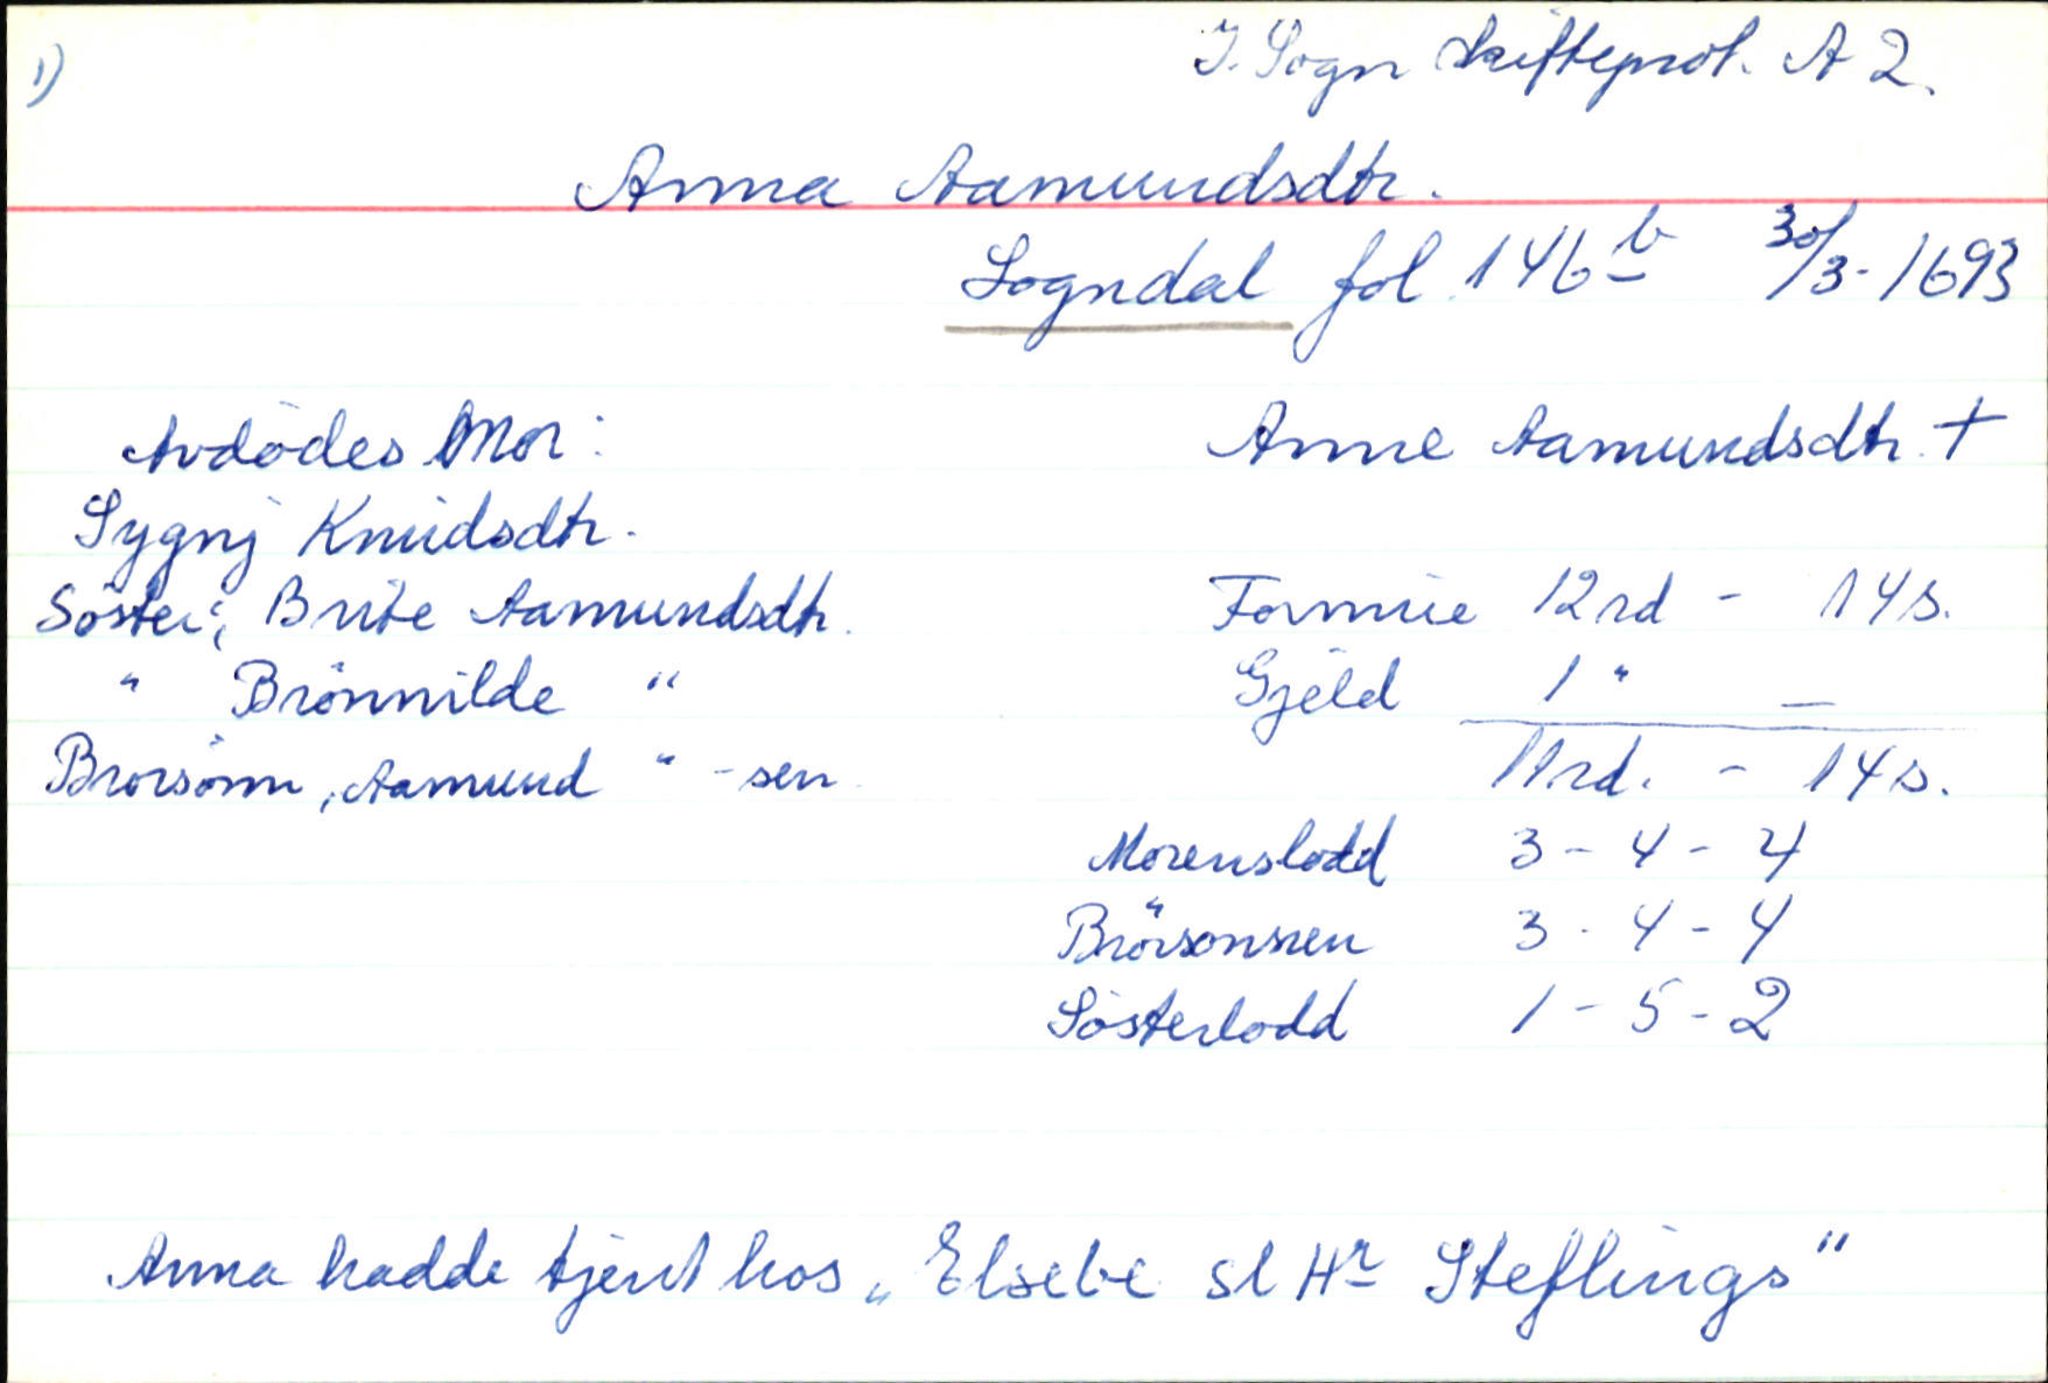 1)
I. Sogn Skifteprot. A 2.
Anna Aamundsdtr.
Sogndal fol. 146 b 30/3-1693
Avdödes Mor:
Sygnj Knudsdtr.
Söster, Brite Aamundsdtr.
" Brönnilde "
Brorsönn, Aamund " -sen
Anne Aamundsdtr. +
Formue 12 rd - 14 s.
Gjeld 1 " —
11 rd. - 14 s.
Morenslodd 3 - 4 - 4
Brorsonnen " 3 - 4 - 4
Sösterlodd 1 - 5 - 2
Anna hadde tjent hos „Elsebe sl Hr Steflings"